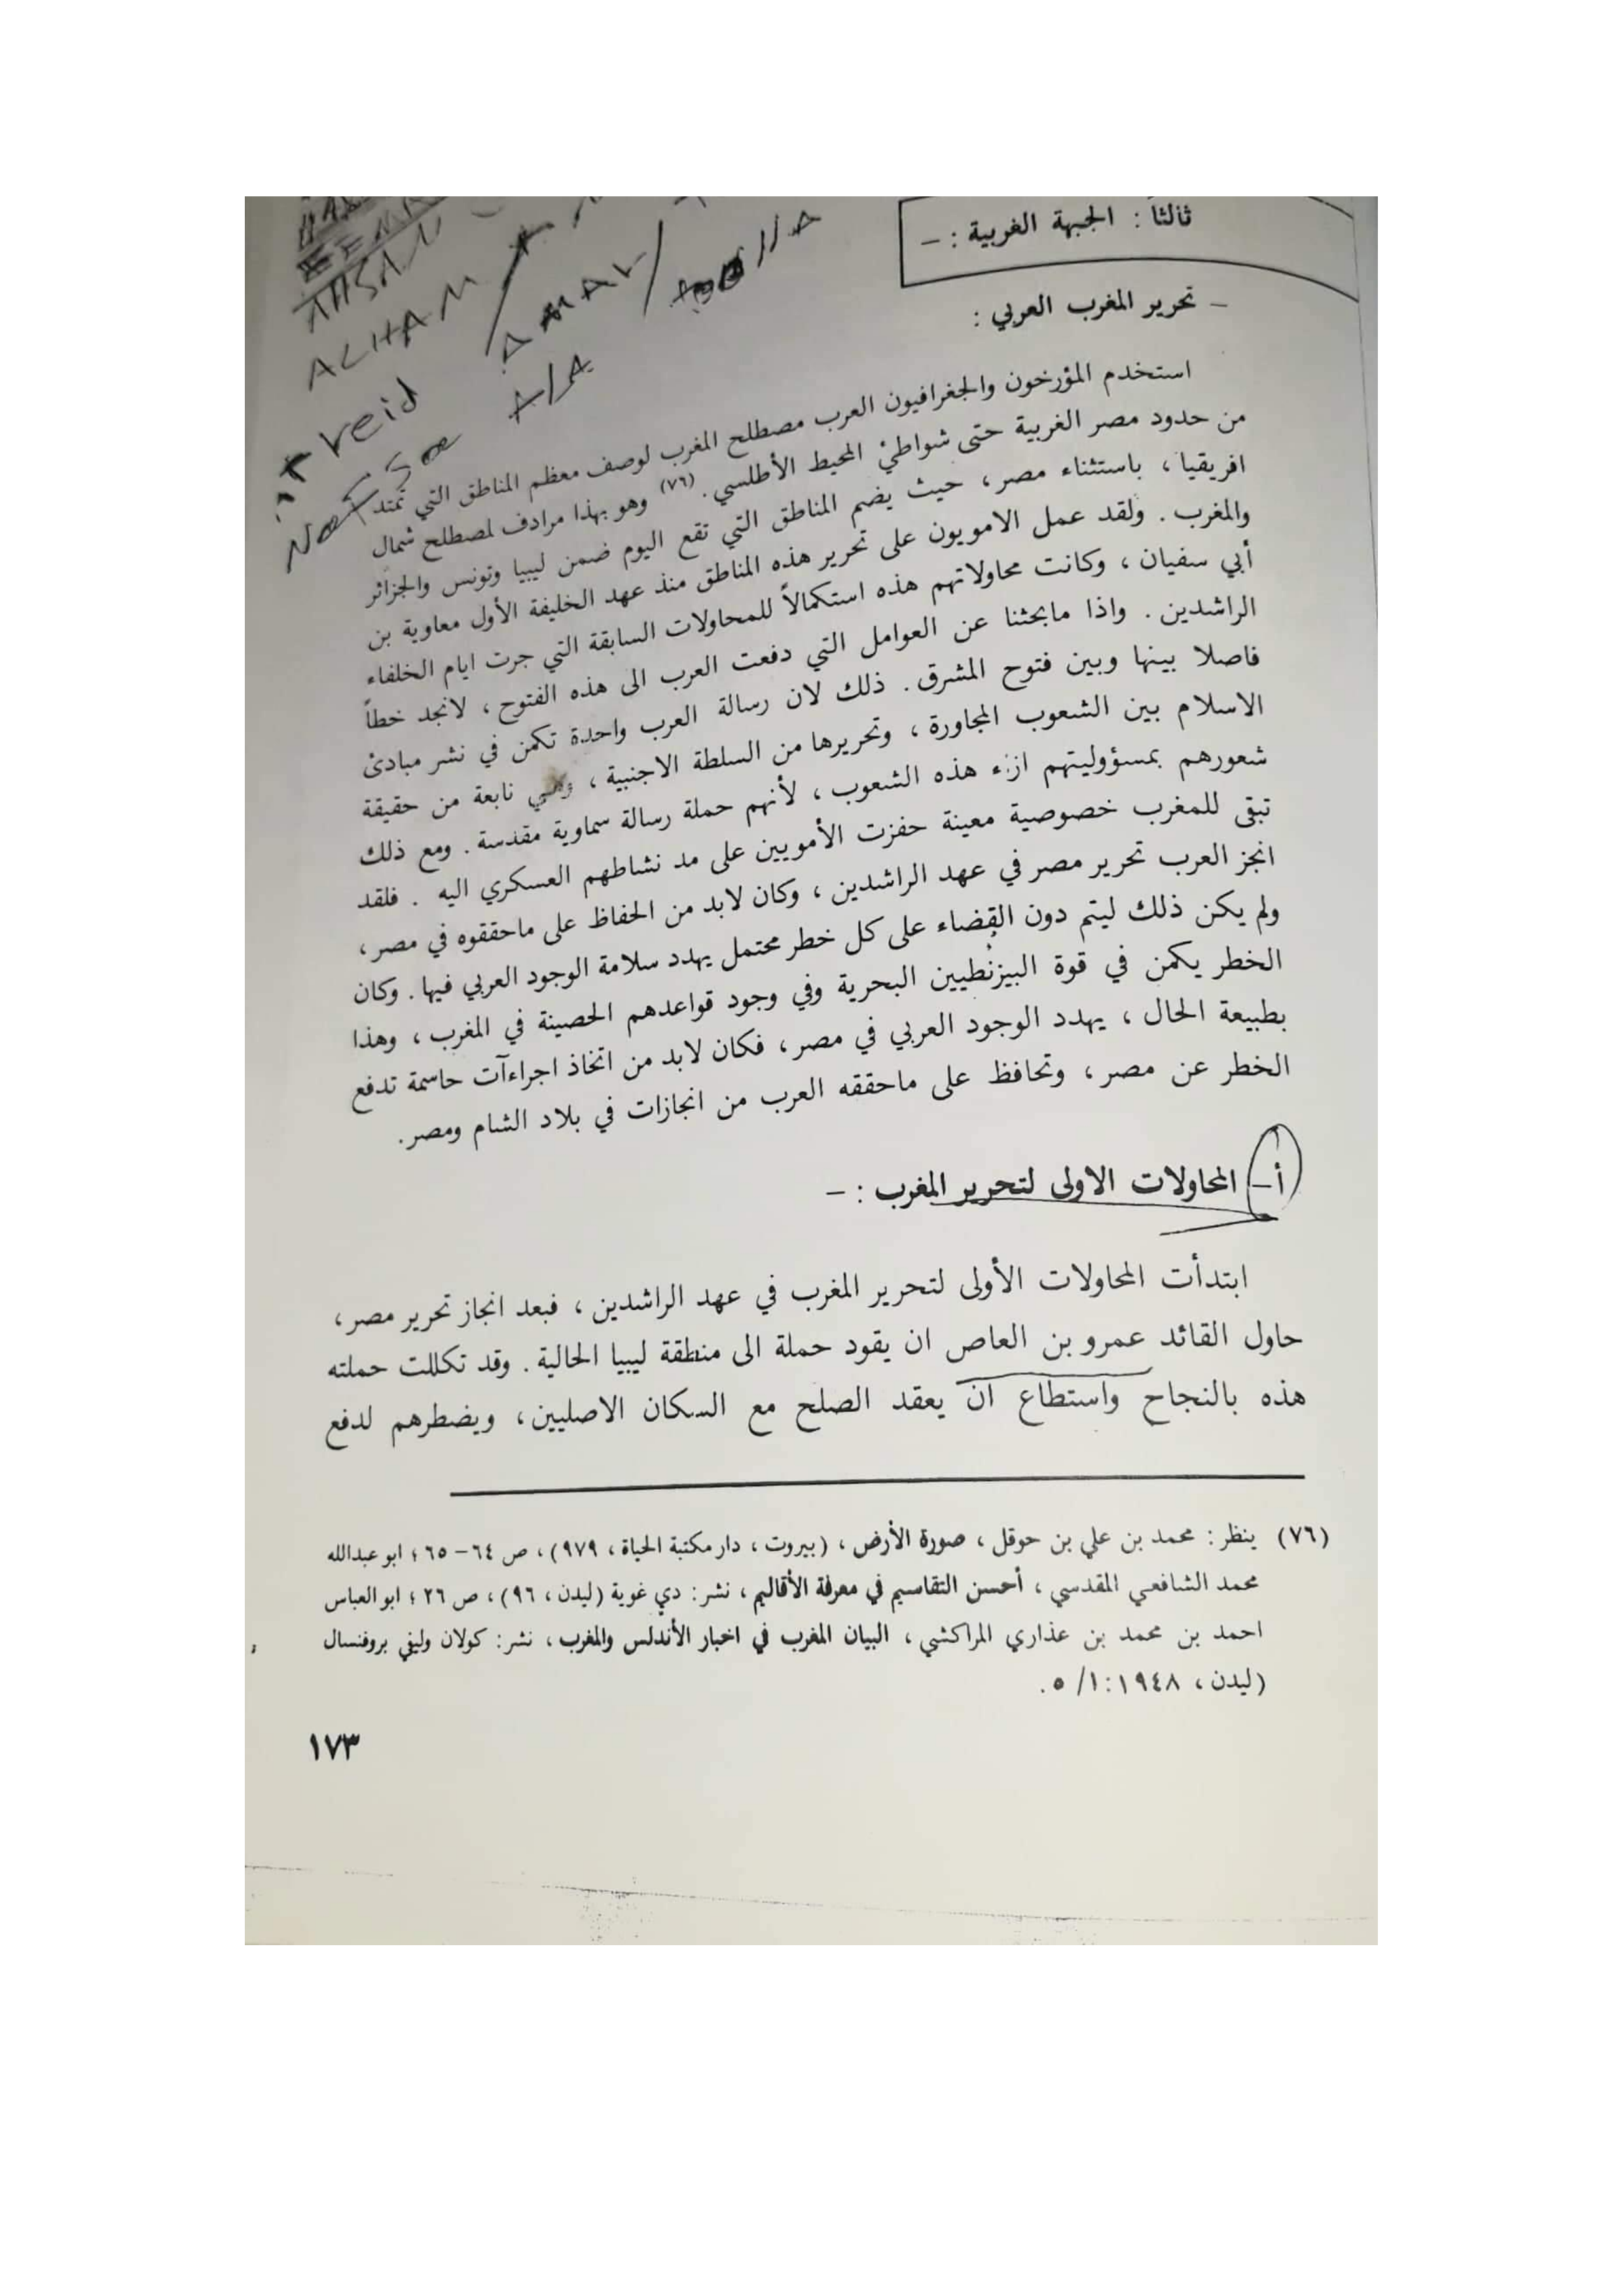 ثالثاً : الجبهة الغربية : –
– تحرير المغرب العربي :
استخدم المؤرخون والجغرافيون العرب مصطلح المغرب لوصف معظم المناطق التي تمتد
من حدود مصر الغربية حتى شواطئ المحيط الأطلسي . (٧٦) وهو بهذا مرادف لمصطلح شمال
افريقيا ، باستثناء مصر ، حيث يضم المناطق التي تقع اليوم ضمن ليبيا وتونس والجزائر
والمغرب . ولقد عمل الامويون على تحرير هذه المناطق منذ عهد الخليفة الأول معاوية بن
أبي سفيان ، وكانت محاولاتهم هذه استكمالاً للمحاولات السابقة التي جرت ايام الخلفاء
الراشدين . واذا مابحثنا عن العوامل التي دفعت العرب الى هذه الفتوح ، لانجد خطاً
فاصلا بينها وبين فتوح المشرق . ذلك لان رسالة العرب واحدة تكمن في نشر مبادئ
الاسلام بين الشعوب المجاورة ، وتحريرها من السلطة الاجنبية ، وهي نابعة من حقيقة
شعورهم بمسؤوليتهم ازاء هذه الشعوب ، لأنهم حملة رسالة سماوية مقدسة . ومع ذلك
تبقى للمغرب خصوصية معينة حفزت الأمويين على مد نشاطهم العسكري اليه . فلقد
انجز العرب تحرير مصر في عهد الراشدين ، وكان لابد من الحفاظ على ماحققوه في مصر ،
ولم يكن ذلك ليتم دون القضاء على كل خطر محتمل يهدد سلامة الوجود العربي فيها . وكان
الخطر يكمن في قوة البيزنطيين البحرية وفي وجود قواعدهم الحصينة في المغرب ، وهذا
بطبيعة الحال ، يهدد الوجود العربي في مصر ، فكان لابد من اتخاذ اجراءآت حاسمة تدفع
الخطر عن مصر ، وتحافظ على ماحققه العرب من انجازات في بلاد الشام ومصر .
أ – المحاولات الاولى لتحرير المغرب : –
ابتدأت المحاولات الأولى لتحرير المغرب في عهد الراشدين ، فبعد انجاز تحرير مصر ،
حاول القائد عمرو بن العاص ان يقود حملة الى منطقة ليبيا الحالية . وقد تكللت حملته
هذه بالنجاح واستطاع ان يعقد الصلح مع السكان الاصليين ، ويضطرهم لدفع
(٧٦) ينظر : محمد بن علي بن حوقل ، صورة الأرض ، (بيروت ، دار مكتبة الحياة ، ٩٧٩) ، ص ٦٤ – ٦٥ ؛ ابو عبدالله
محمد الشافعي المقدسي ، أحسن التقاسيم في معرفة الأقاليم ، نشر : دي غوية (ليدن ، ٩٦) ، ص ٢٦ ؛ ابو العباس
احمد بن محمد بن عذاري المراكشي ، البيان المغرب في اخبار الأندلس والمغرب ، نشر : كولان وليفي بروفنسال
(ليدن ، ١٩٤٨ : ١/ ٥ .
١٧٣
AHSAN
ALHAM
AMAL
A/A
veid